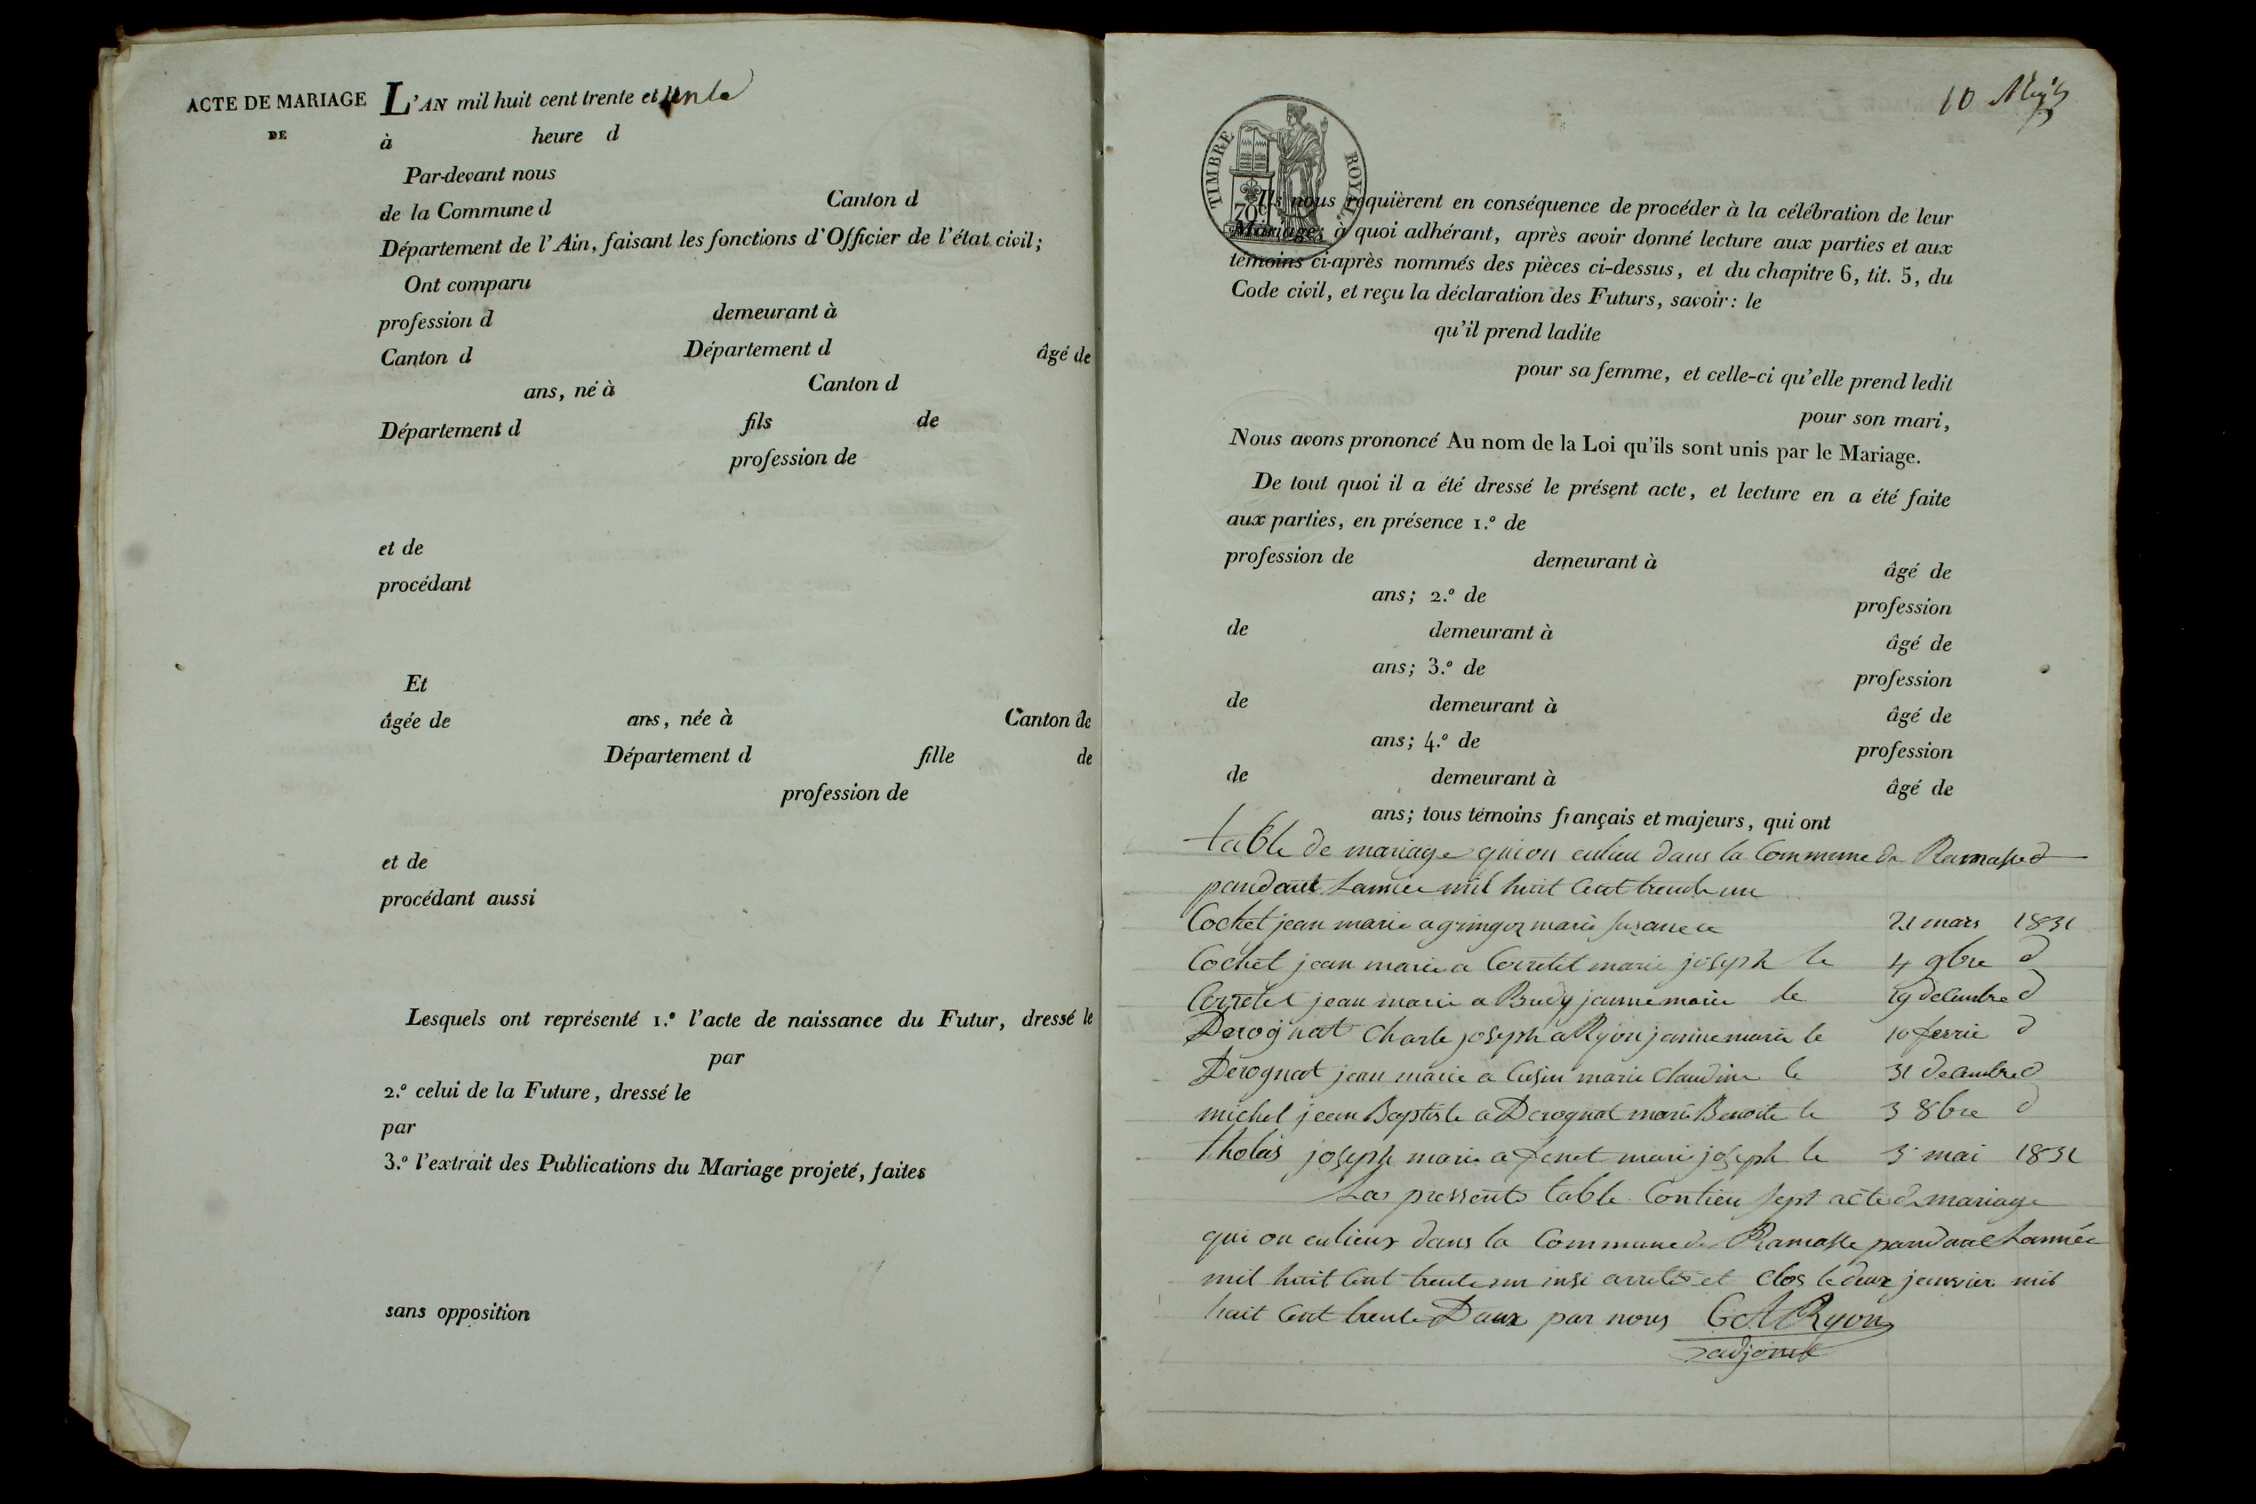 ACTE DE MARIAGE
DE
L'AN mil huit cent trente et
à heure d
Par-devant nous
de la Commune d Canton d
Département de l'Ain, faisant les fonctions d'Officier de l'état civil;
Ont comparu
profession d demeurant à
Canton d Département d âgé de
ans, né à Canton d
Département d fils de
profession de
et de
procédant
Et
âgée de ans, née à Canton de
Département d fille de
profession de
et de
procédant aussi
Lesquels ont représenté 1.º l'acte de naissance du Futur, dressé le
par
2.º celui de la Future, dressé le
par
3.º l'extrait des Publications du Mariage projeté, faites
sans opposition
10
TIMBRE ROYAL
70c
Ils nous requièrent en conséquence de procéder à la célébration de leur
Mariage; à quoi adhérant, après avoir donné lecture aux parties et aux
témoins ci-après nommés des pièces ci-dessus, et du chapitre 6, tit. 5, du
Code civil, et reçu la déclaration des Futurs, savoir: le
qu'il prend ladite
pour sa femme, et celle-ci qu'elle prend ledit
pour son mari,
Nous avons prononcé Au nom de la Loi qu'ils sont unis par le Mariage.
De tout quoi il a été dressé le présent acte, et lecture en a été faite
aux parties, en présence 1.º de
profession de demeurant à âgé de
ans; 2.º de profession
de demeurant à âgé de
ans; 3.º de profession
de demeurant à âgé de
ans; 4.º de profession
de demeurant à âgé de
ans; tous témoins français et majeurs, qui ont
table de mariage qui on eulieu dans la Commune de Ramasse
pandant Lannée mil huit Cent trente un
Cochet jean marie a gringoz marie Susane le 21 mars 1831
Cochet jean marie a Corretel marie joseph le 4 9bre d
Corretel jean marie a Budy janne marie le 19 decembre d
Derognat Charle joseph a Ryon janne marie le 10 fevrie d
Derognat jean marie a Cusin marie Claudine le 31 decambre d
michel jean Baptiste a Derognat marie Benoite le 3 8bre d
tholas joseph marie a fenet marie joseph le 5 mai 1831
La pressente table Contien sept acte de mariage
qui on eulieux dans la Commune de Ramasse pandant Lannée
mil huit Cent trente un insi arreté et Clos le deux janvier mil
huit Cent trente Deux par nous C A Ryon
adjoint